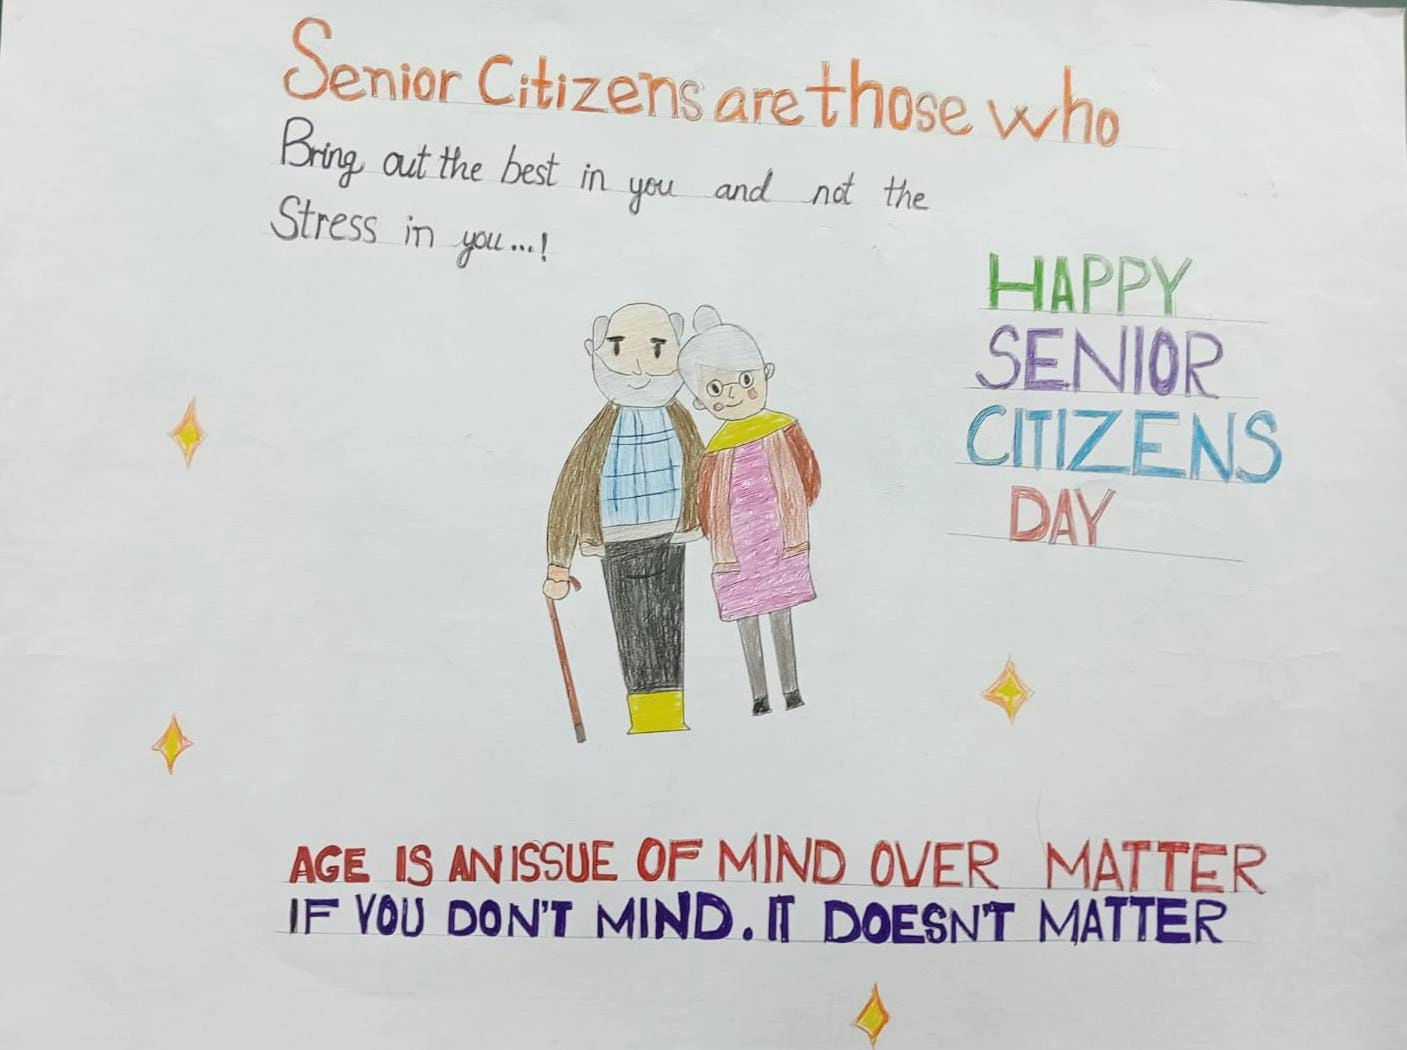 Senior Citizens are those who
Bring out the best in you and not the
Stress in you...!
HAPPY
SENIOR
CITIZENS
DAY
AGE IS AN ISSUE OF MIND OVER MATTER
IF YOU DON'T MIND. IT DOESN'T MATTER